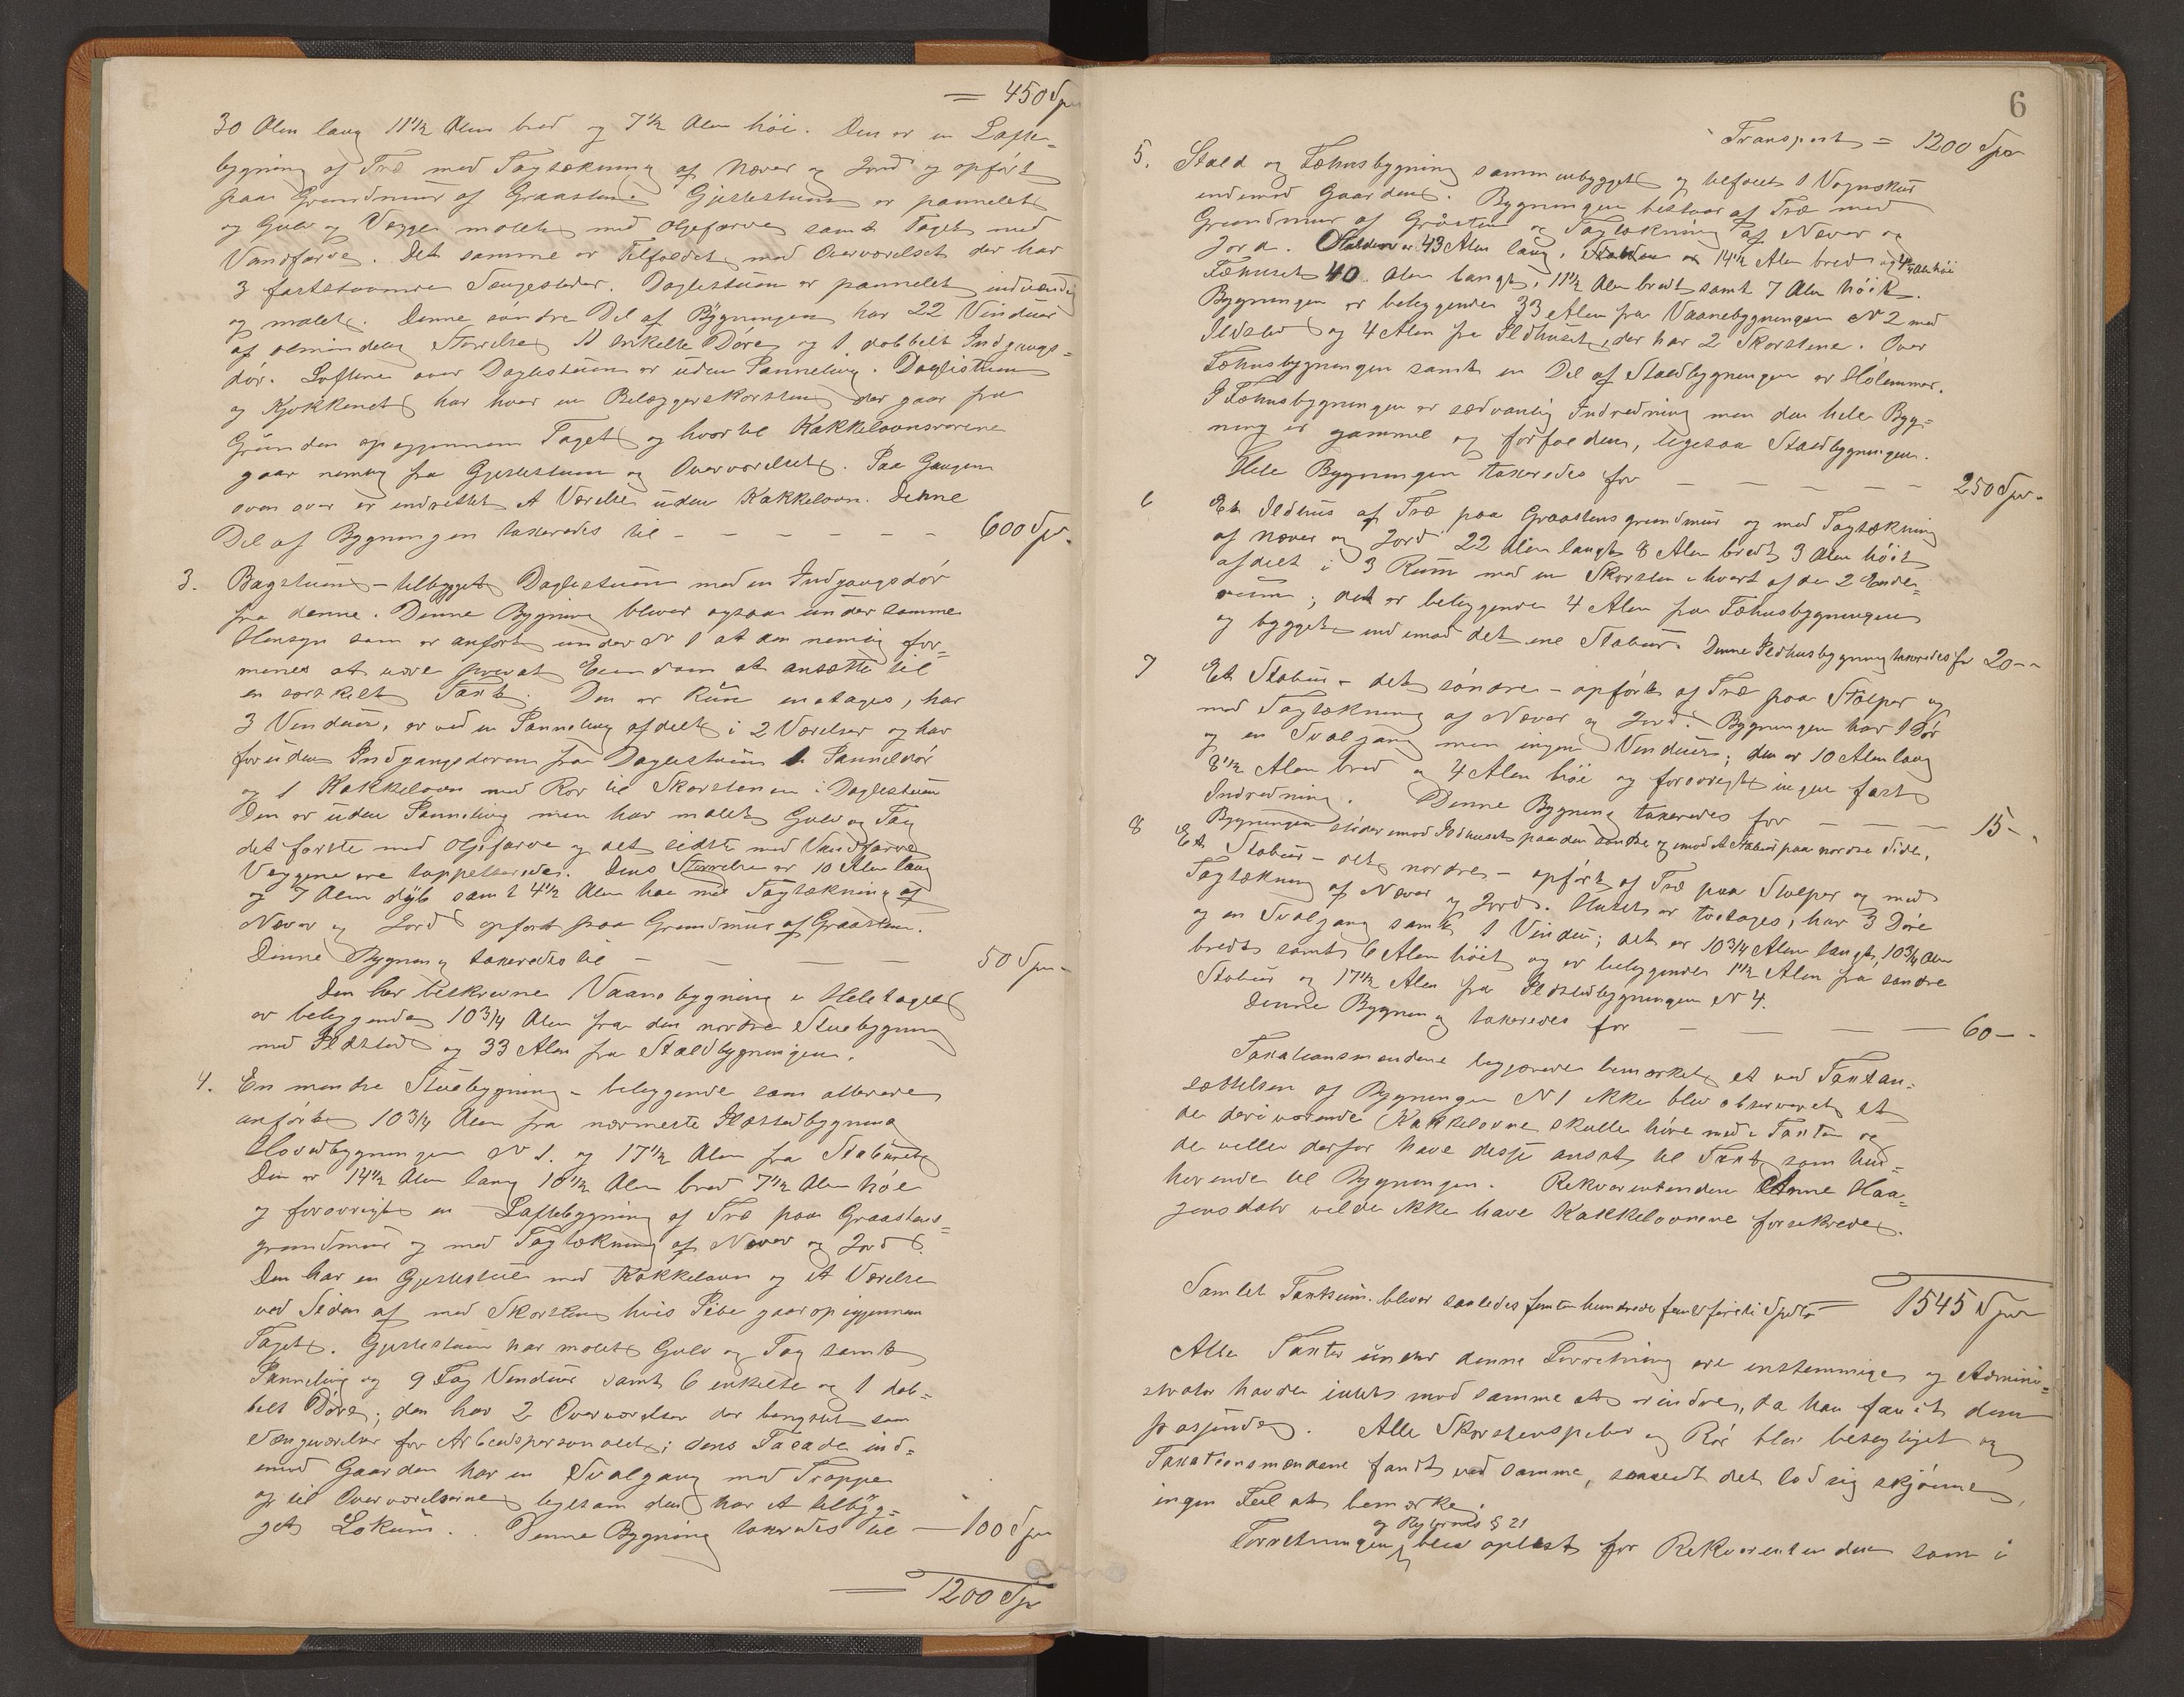 = 450 Spd
30 Alen lang 11 1/2 Alen bred og 7 1/2 Alen höi. Den er en Lafte-
bygning af Træ med Tagtækning af Næver og Jord og opfört
paa Grundmur af Graasten. Gjestestuen er pannelet
og Gulv og Vægge malet med Oljefarve samt Taget med
Vandfarve. Det samme er Tilfældet med Overværelset der har
3 faststaaende Sengesteder. Daglestuen er pannelet indvendig
og malet. Denne søndre Del af Bygningen har 22 Vinduer
af almindelig Størrelse, 11 enkelte Döre og 1 dobbelt Indgangs-
dör. Loftene over Daglestuen er uden Panneling. Daglistuen
og Kjøkkenet har hver en Belæggerskorsten der gaar fra
Grunden op igjennem Taget og hvortil Kakkelovnsrørene
gaar nemlig fra Gjestestuen og Overværelset. Paa Gangen
oven over er indrettet et Værelse uden Kakkelovn. Denne
Del af Bygningen taxeredes til - - - - - - 600 Spd.
3. Bagstuen - tilbygget Daglestuen med en Indgangsdör
fra denne. Denne Bygning bliver ogsaa under samme
Hensyn som er anfört under N 1 at den nemlig for-
menes at være privat Eiendom at ansætte til
en særskilt Taxt. Den er kun enetages, har
3 Vinduer, er ved en Panneling afdelt i 2 Værelser og har
foruden Indgangsdøren fra Daglestuen 1 Panneldör
og 1 Kakkelovn med Rør til Skorstenen i Daglestuen
Den er uden Panneling men har malet Gulv og Tag
det første med Oljefarve og det sidste med Vandfarve
Væggene ere tappetserede. Dens Størrelse er 10 Alen lang
og 7 Alen dyb samt 4 1/2 Alen høi med Tagtækning af
Næver og Jord opført paa Grundmur af Graasten.
Denne Bygning taxeredes til - - - - 50 Spd -
Den her beskrevne Vaanebygning i Heletaget
er beliggende 10 3/4 Alen fra den nordre Stuebygning
med Ildsted og 33 Alen fra Staldbygningen.
4. En mindre Stuebygning - beliggende som allerede
anfört 10 3/4 Alen fra nærmeste Ildstedbygning
Hovedbygningen N 1. og 17 1/2 Alen fra Staburet
Den er 14 1/2 Alen lang 10 1/2 Alen bred 7 1/2 Alen höi
og forøvrigt en Laftebygning af Træ paa Graastens-
grundmur og med Tagtækning af Næver og Jord.
Den har en Gjestestue med Kakkelovn og et Værelse
ved Siden af med Skorsten hvis Pibe gaar op igjennem
Taget. Gjestestuen har malet Gulv og Tag samt
Panneling og 9 Fag Vinduer samt 6 enkelte og 1 dob-
belt Döre; den har 2 Overværelser der benyttes som
Sengeværelser for Arbeidspersonalet; dens Facade ind-
imod Gaarden har en Svalgang med Trappe
op til Overværelserne ligesom den har et tilbyg-
get Lokum. Denne Bygning taxeredes til — 100 Spd
= 1200 Spd
6
Transport = 1200 Spd
5. Stald og Fæhusbygning sammenbygget og tilføiet 1 Vognskur
indimod Gaarden. Bygningen bestaar af Træ med
Grundmur af Gråsten og Tagtækning af Næver og
Jord. Stalden er 43 Alen lang, 14 1/2 Alen bred og 7 1/2 Alen höi
Fæhuset 40 Alen langt, 11 1/2 Alen bredt samt 7 Alen höit.
Bygningen er beliggende 33 Alen fra Vaanebygningen N 2 med
Ildsted og 4 Alen fra Ildhuset, der har 2 Skorstene. Over
Fæhusbygningen samt en Del af Staldbygningen er Hölemmer.
I Fæhusbygningen er sædvanlig Indredning men den hele Byg-
ning er gammel og forfalden, ligesaa Staldbygningen.
Hele Bygningen taxeredes for - - - - - 250 Spd.
6 Et Ildhus af Træ paa Graastensgrundmur og med Tagtækning
af Næver og Jord 22 Alen langt 8 Alen bredt 3 Alen höit
afdelt i 3 Rum med en Skorsten i hvert af de 2 Ende-
rum; det er beliggende 4 Alen fra Fæhusbygningen
og bygget ind imod det ene Stabur. Denne Ildhusbygning taxeredes for 20 - -
7 Et Stabur - det söndre - opfört af Træ paa Stolper og
med Tagtækning af Næver og Jord. Bygningen har 1 Dör
og en Svalgang men ingen Vinduer; den er 10 Alen lang
8 1/2 Alen bred og 4 Alen höi og forøvrigt ingen fast
Indredning. Denne Bygning taxeredes for - - - 15 - -
Bygningen støder imod Ildhuset paa den søndre og imod et Stabur paa nordre Side.
8 Et Stabur - det nordre - opfört af Træ paa Stolper og med
Tagtækning af Næver og Jord. Huset er toetages, har 3 Döre
og en Svalgang samt 1 Vindu; det er 10 3/4 Alen langt, 10 3/4 Alen
bredt samt 6 Alen höit og er beliggende 1 1/2 Alen fra søndre
Stabur og 17 1/2 Alen fra Ildstedbygningen N 4.
Denne Bygning taxeredes for - - - - 60 - -
Taxationsmændene begjærede bemærket at ved Taxtan-
sættelsen af Bygningen N 1 ikke blev observeret at
de deri værende Kakkelovne skulle höre med i Taxten og
de ville derfor have disse ansat til Taxt som hen-
hørende til Bygningen. Rekvirentinden Anne Haa-
gensdatr vilde ikke have Kakkelovnene forsikrede.
Samlet Taxtsum bliver saaledes femten hundrede fem og førti Spdlr = 1545 Spd
Alle Taxter under denne Forretning ere enstemmige og Admini-
strator havde intet mod samme at erindre, da han fandt dem
passende. Alle Skorstenspiber og Rör blev besigtiget og
Taxationsmændene fandt ved samme, saavidt det lod sig skjönne,
ingen Feil at bemærke.
Forretningen og § 21 blev oplæst for Rekvirentinden som i